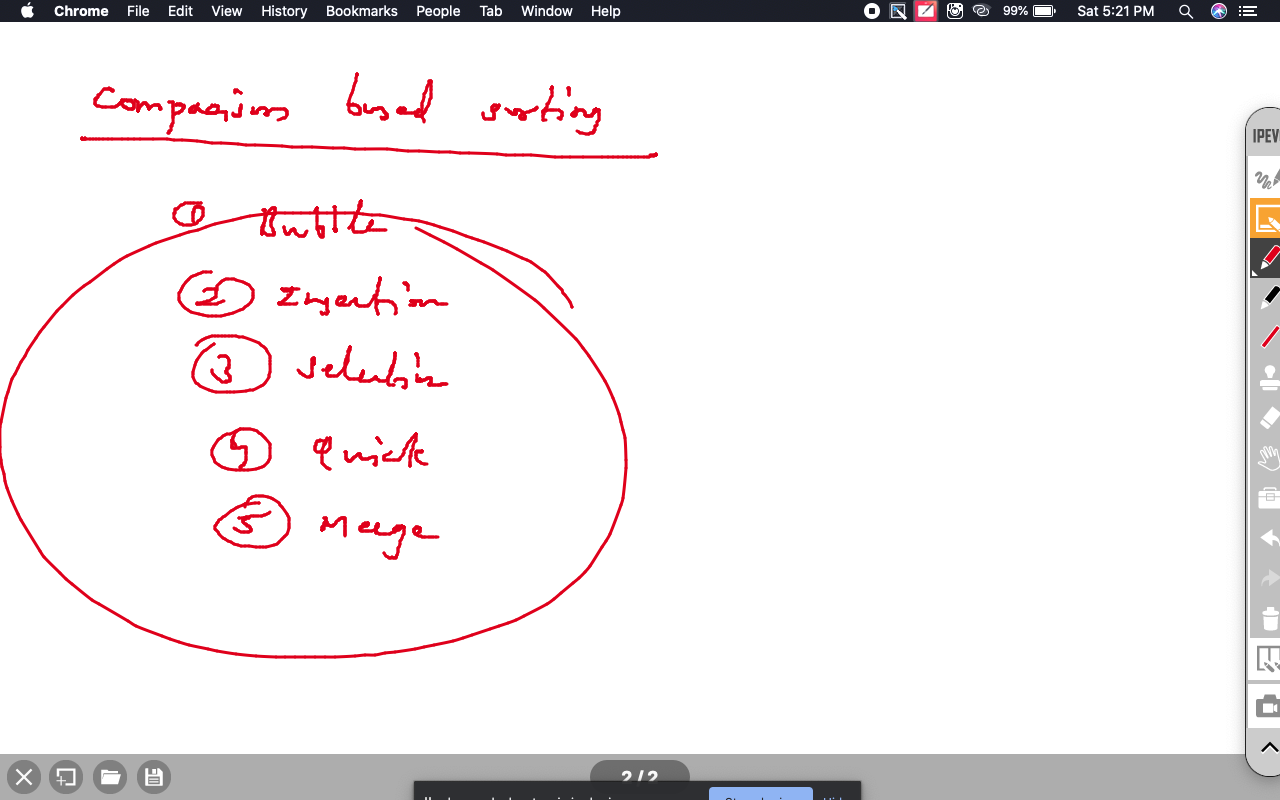 Chrome File Edit View History Bookmarks People Tab Window Help 99% Sat 5:21 PM
Comparison based sorting
IPEV
① Bubble
② Insertion
③ Selection
④ Quick
⑤ Merge
2 / 2